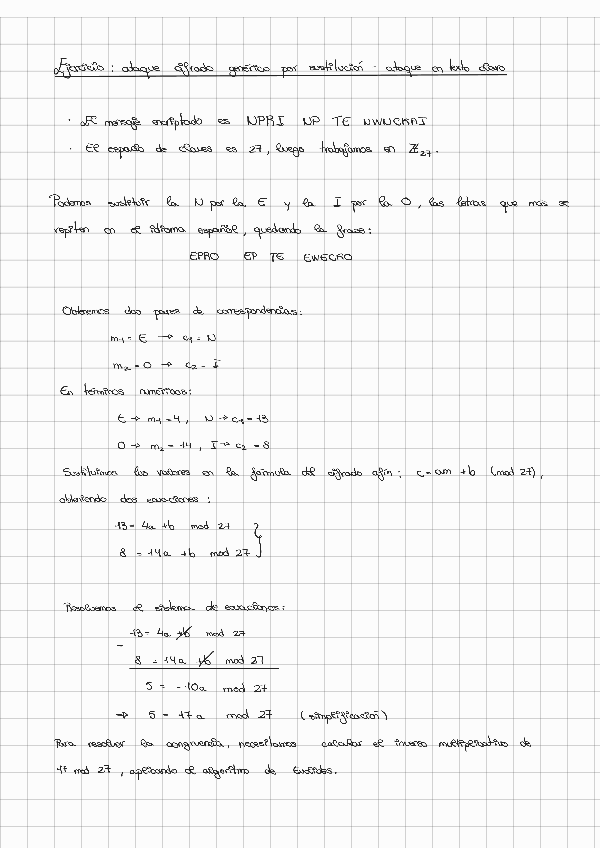 Ejercicio: ataque cifrado genérico por sustitución - ataque en texto claro
· El mensaje encriptado es NPRI NP TE NWNCRAI
· El espacio de claves es 27, luego trabajamos en ℤ₂₇.
Podemos sustituir la N por la E y la I por la O, las letras que más se
repiten en el idioma español, quedando la frase:
EPRO EP TE EWECRO
Obtenemos dos pares de correspondencias:
m₁ = E → c₁ = N
m₂ = O → c₂ = I
En términos numéricos:
E → m₁ = 4, N → c₁ = 13
O → m₂ = 14, I → c₂ = 8
Sustituimos los valores en la fórmula del cifrado afín: c = am + b (mod 27),
obteniendo dos ecuaciones:
13 = 4a + b mod 27
8 = 14a + b mod 27
Resolvemos el sistema de ecuaciones:
13 = 4a + b mod 27
-
8 = 14a + b mod 27
5 = -10a mod 27
→ 5 = 17a mod 27 (simplificación)
Para resolver la congruencia, necesitamos calcular el inverso multiplicativo de
17 mod 27, aplicando el algoritmo de Euclides.